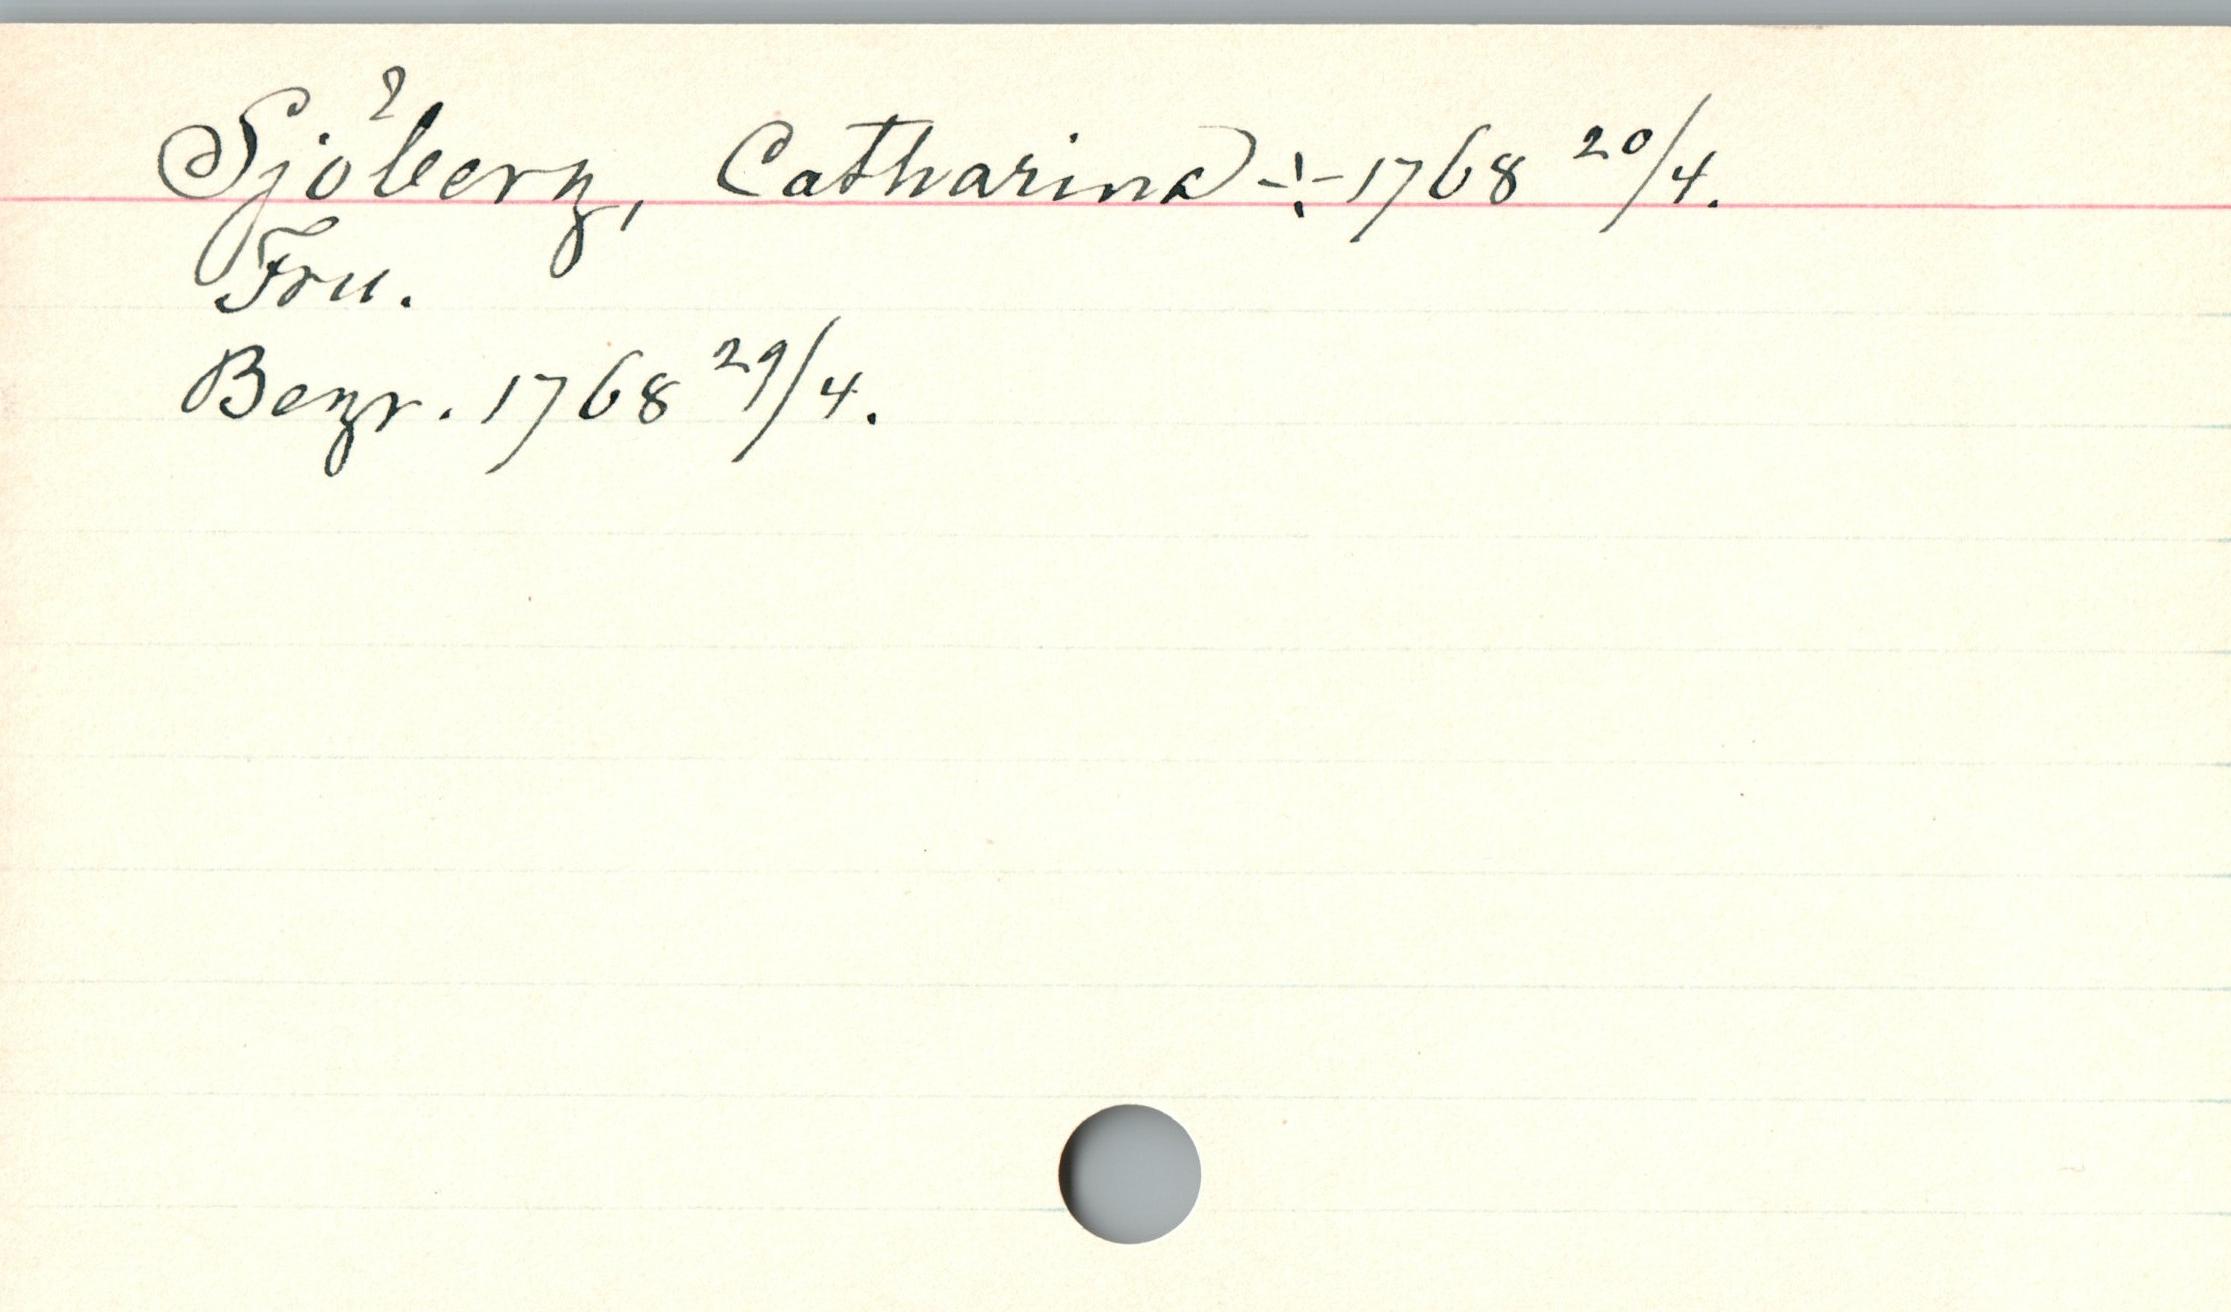 Sjöberg, Catharina ÷ 1768 20/4.
Fru.
Begr. 1768 29/4.